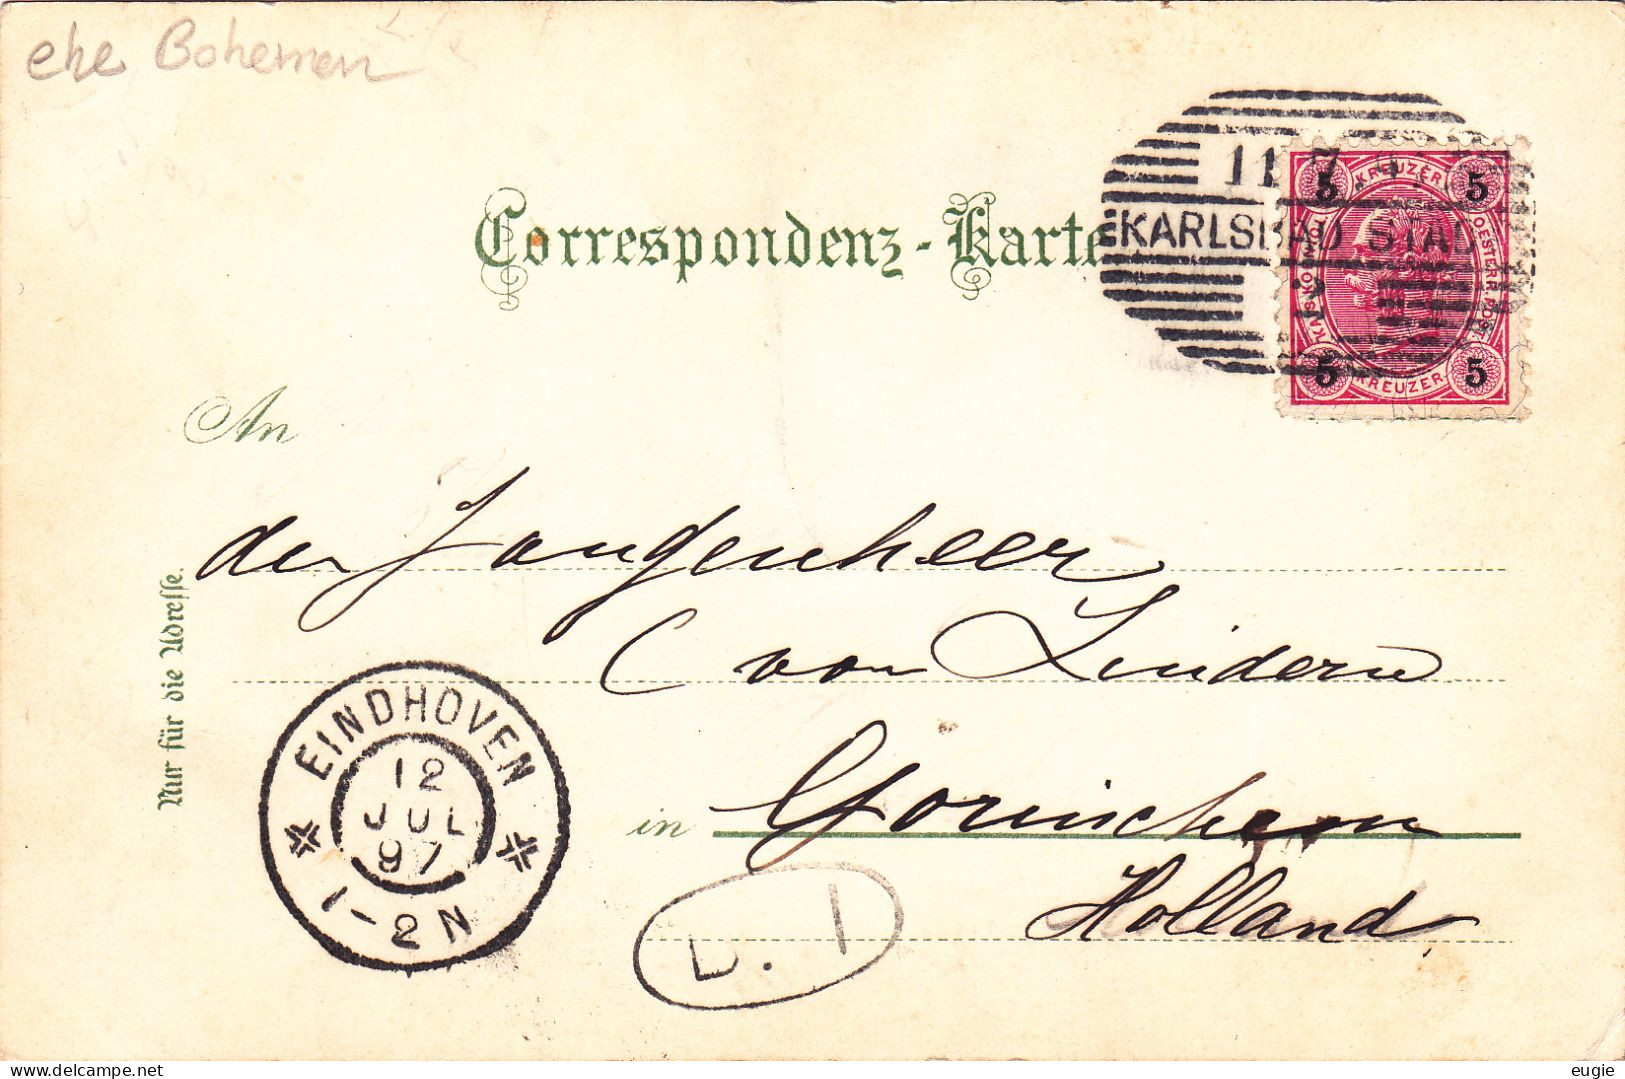 ehe Bohemen
Correspondenz-Karte
11 7 97
KARLSBAD STADT
5 KREUZER 5
KAIS. KÖNIGL. OESTERR. POST
5 KREUZER 5
An
den Jongenheer
C von Lindern
in Gorinchem
Holland
Nur für die Adresse.
EINDHOVEN
12
JUL
97
1-2N
D. 1
delcampe.net
eugie